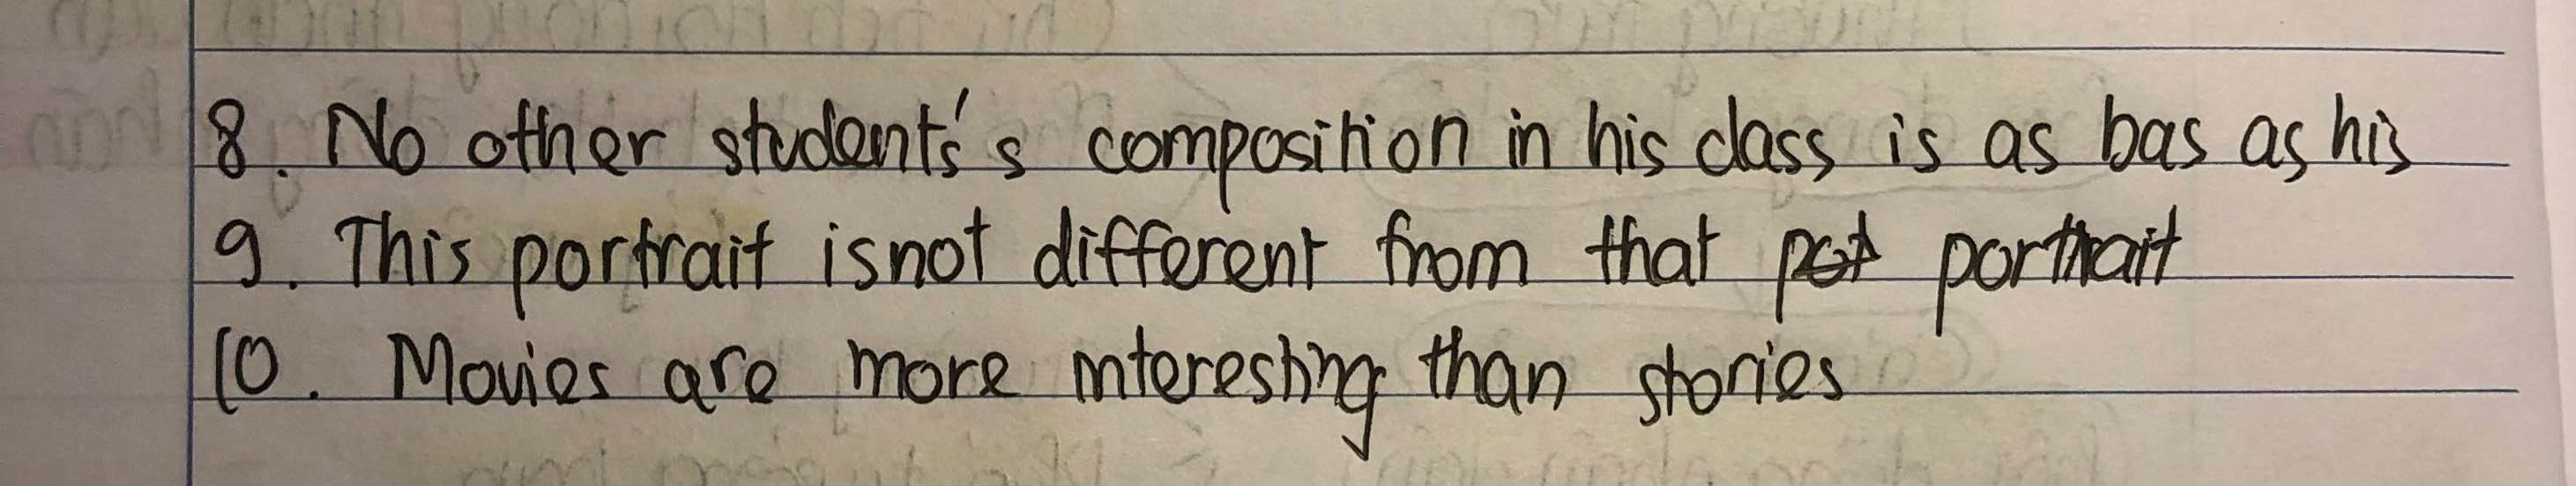 8. No other student's's composition in his class is as bas as his
9. This portrait is not different from that portrait
10. Movies are more interesting than stories